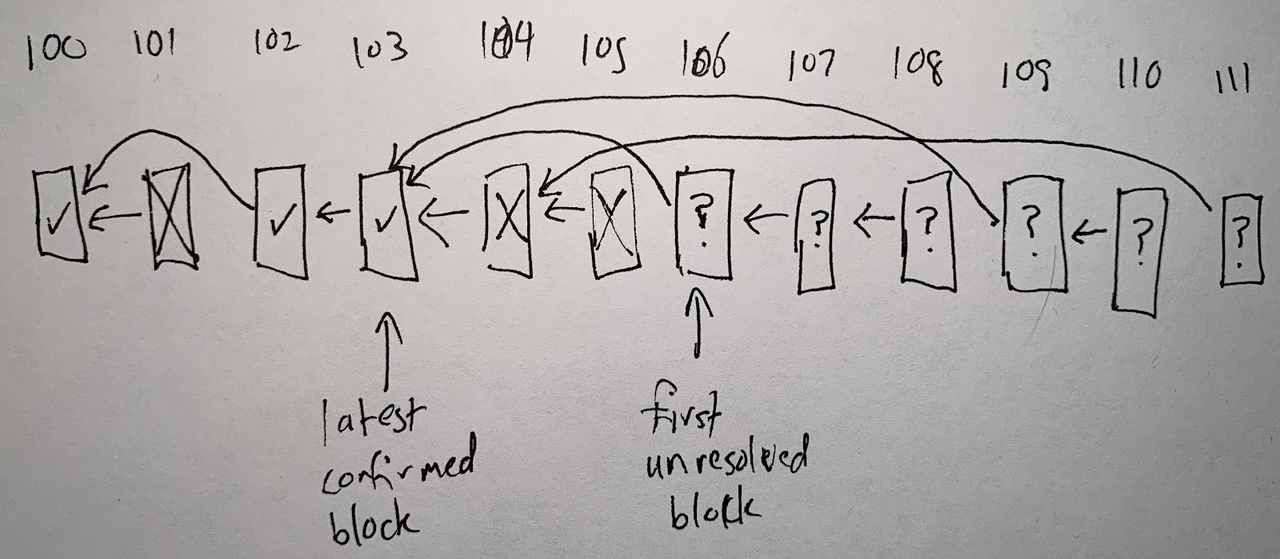 100 101 102 103 104 105 106 107 108 109 110 111
✓ X ✓ ✓ X X ? ? ? ? ? ?
latest
confirmed
block
first
unresolved
block